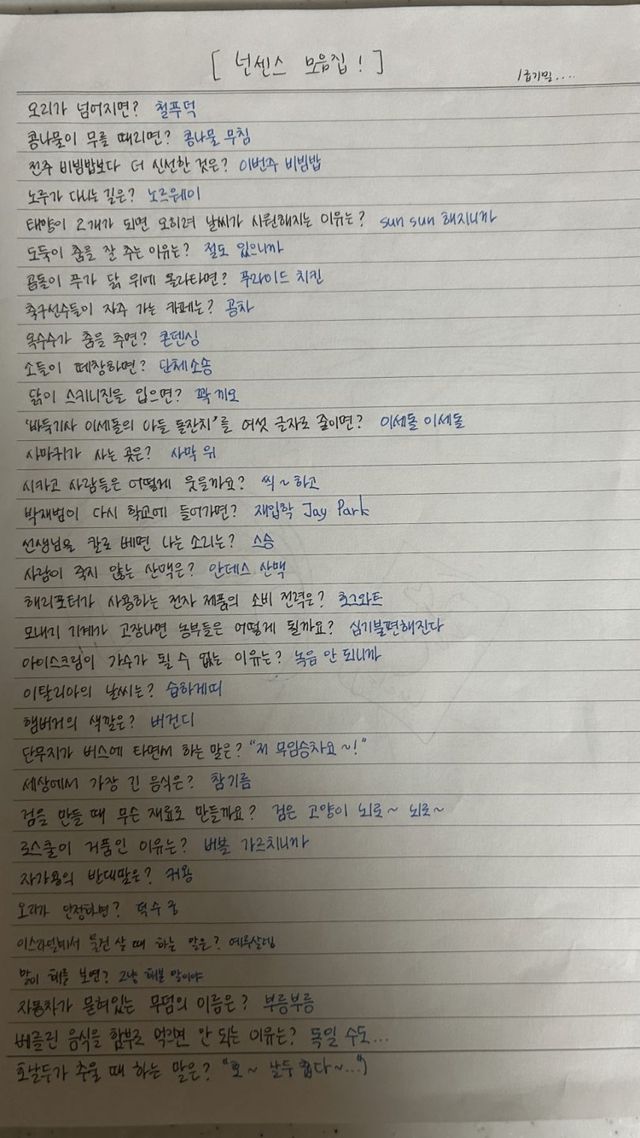 [ 넌센스 모음집! ]
1급기밀....
오리가 넘어지면? 철푸덕
콩나물이 무를 때리면? 콩나물 무침
전주 비빔밥보다 더 신선한 것은? 이번주 비빔밥
노루가 다니는 길은? 노르웨이
태양이 2개가 되면 오히려 날씨가 시원해지는 이유는? sun sun 해지니까
도둑이 춤을 잘 추는 이유는? 절도 있으니까
곰돌이 푸가 닭 위에 올라타면? 푸라이드 치킨
축구선수들이 자주 가는 카페는? 공차
옥수수가 춤을 추면? 콘덴싱
소들이 떼창하면? 단체소송
닭이 스키니진을 입으면? 꽉 끼오
'바둑기사 이세돌의 아들 돌잔치'를 여섯 글자로 줄이면? 이세돌 이세돌
사마귀가 사는 곳은? 사막 위
시카고 사람들은 어떻게 웃을까요? 씩~하고
박재범이 다시 학교에 들어가면? 재입학 Jay Park
선생님을 칼로 베면 나는 소리는? 스승
사람이 죽지 않는 산맥은? 안데스 산맥
해리포터가 사용하는 전자 제품의 소비 전력은? 호그와트
모내기 기계가 고장나면 농부들은 어떻게 될까요? 심기불편해진다
아이스크림이 가수가 될 수 없는 이유는? 녹음 안 되니까
이탈리아의 날씨는? 습하게띠
햄버거의 색깔은? 버건디
단무지가 버스에 타면서 하는 말은? "저 무임승차요~!"
세상에서 가장 긴 음식은? 참기름
검을 만들 때 무슨 재료로 만들까요? 검은 고양이 뇌로~ 뇌로~
로스쿨이 거품인 이유는? 버블 가르치니까
자가용의 반대말은? 커용
오리가 단정하면? 덕수궁
이스라엘에서 물건 살 때 하는 말은? 예루살렘
말이 해를 보면? 그냥 해본 말이야
자동차가 묻혀있는 무덤의 이름은? 부릉부릉
베를린 음식을 함부로 먹으면 안 되는 이유는? 독일 수도...
호날두가 추울 때 하는 말은? "호~ 날두 춥다~...")